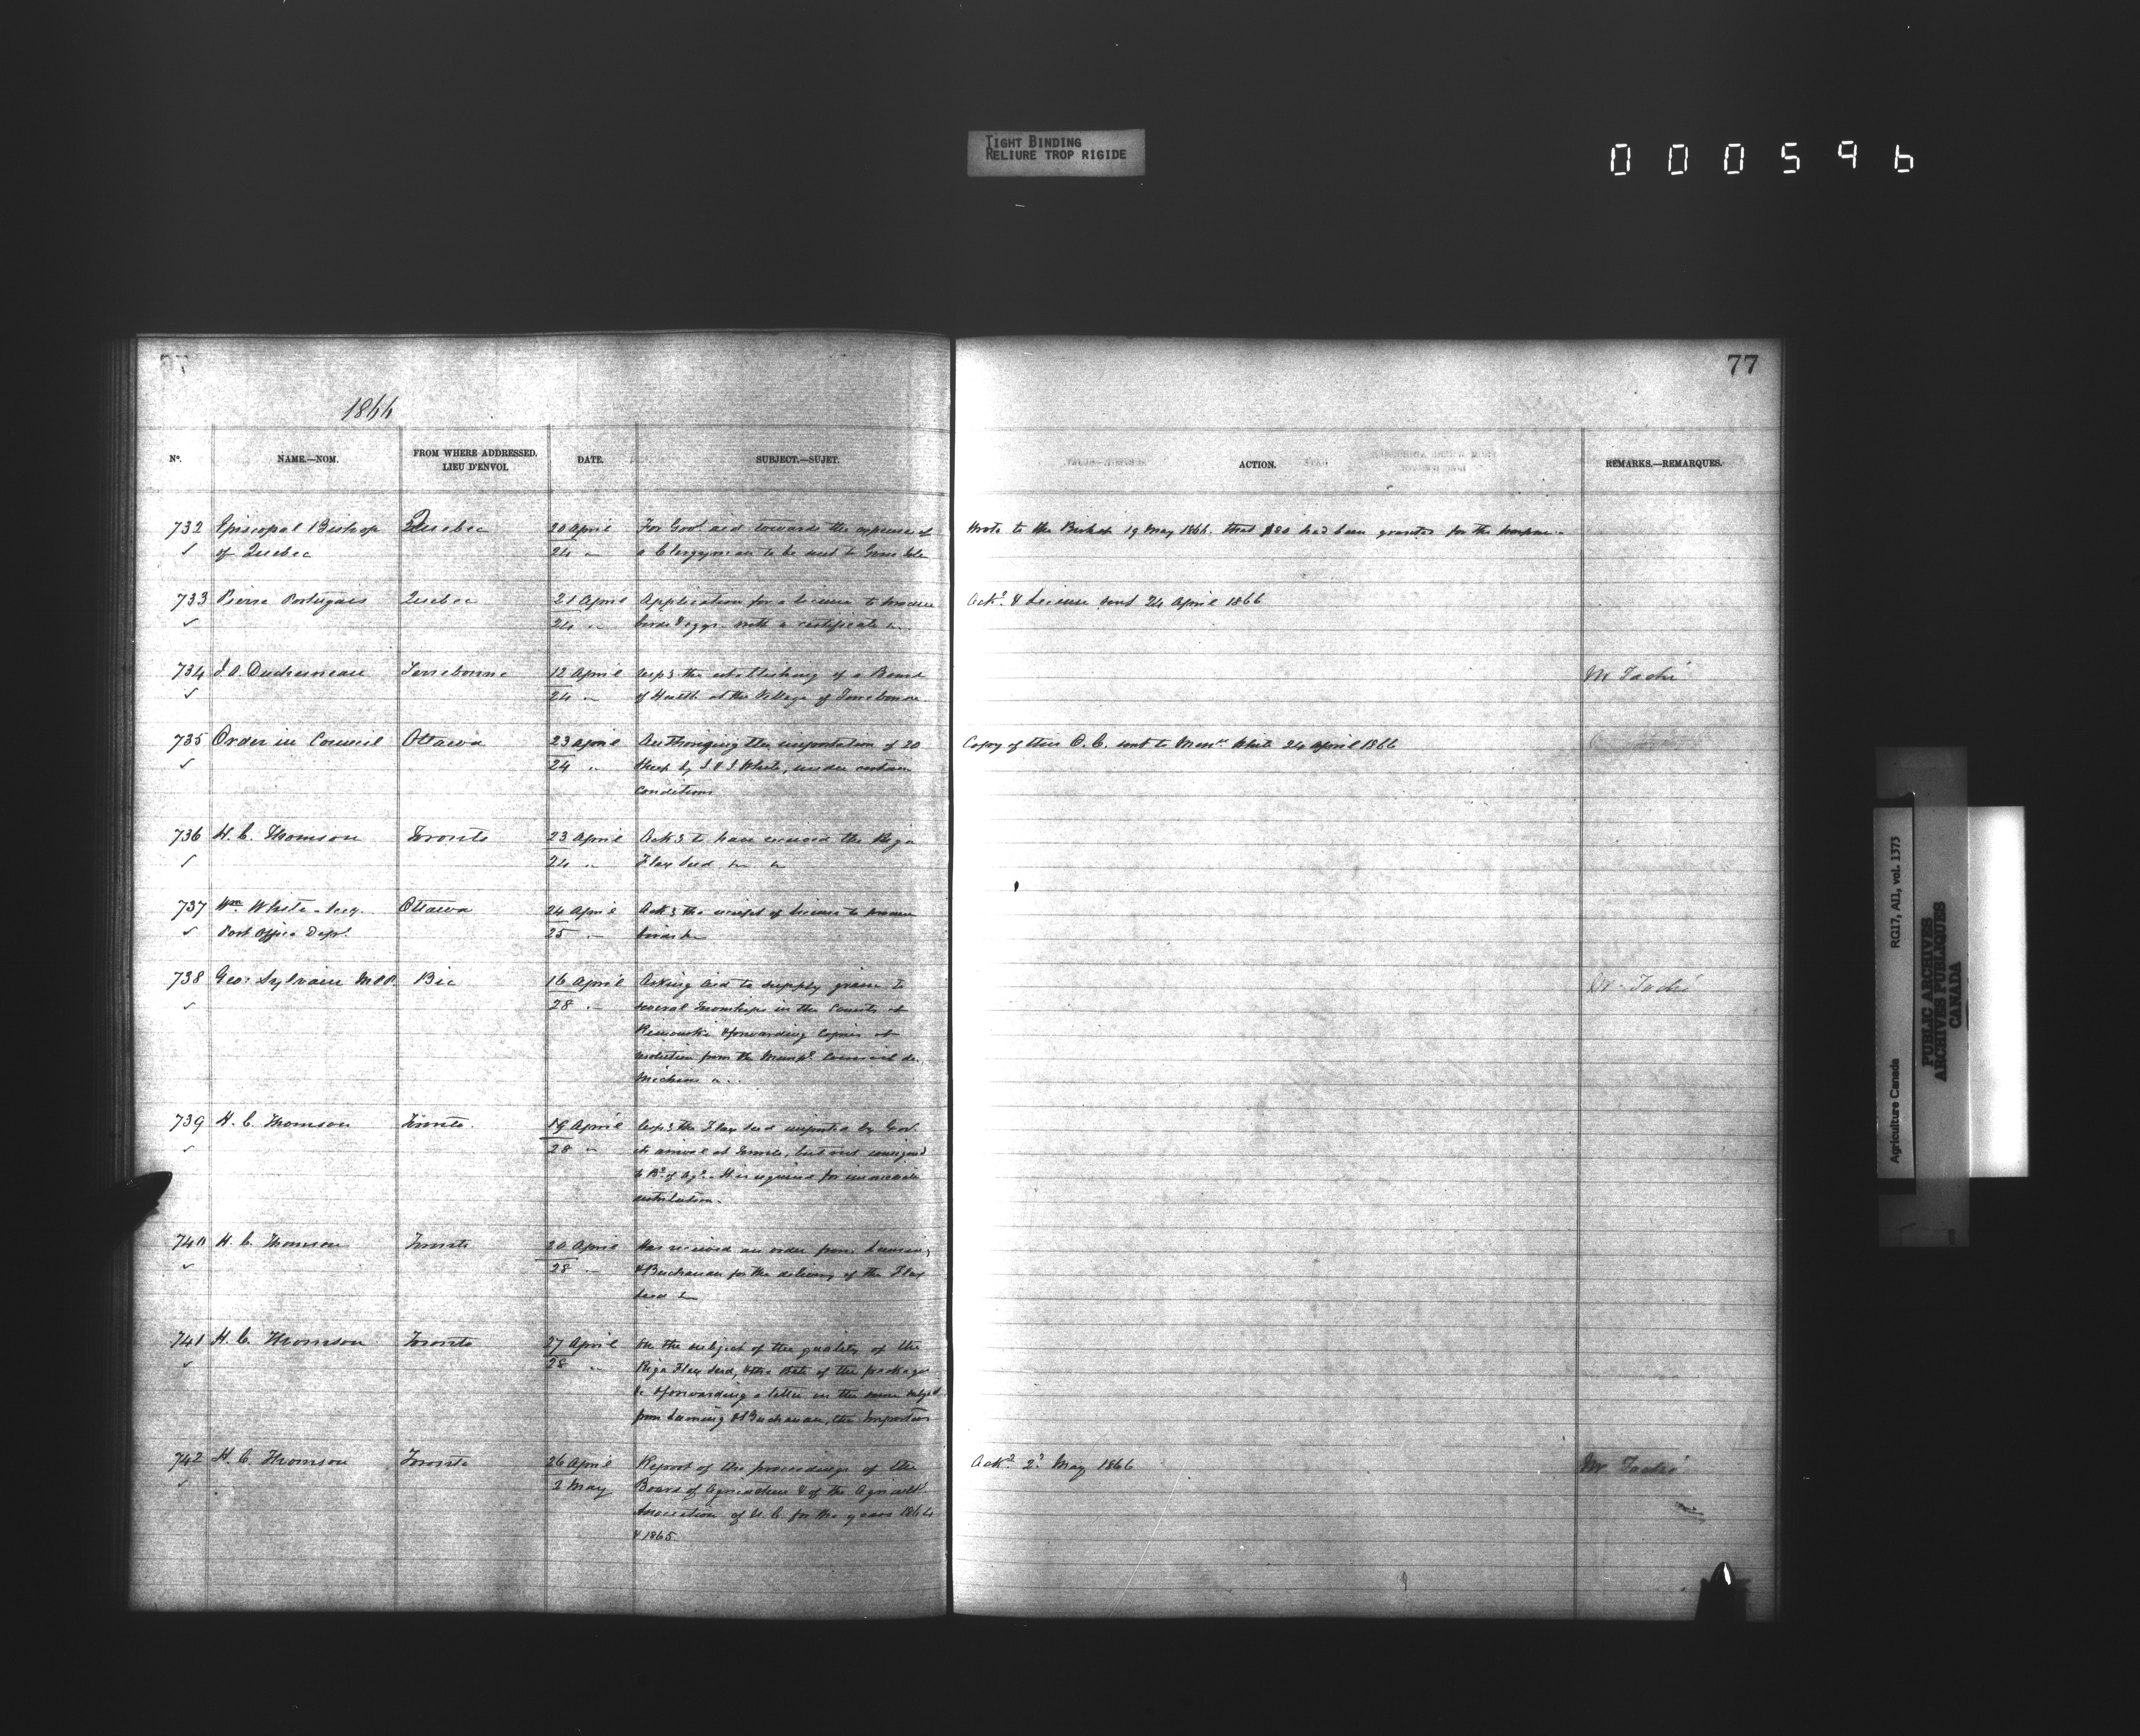 TIGHT BINDING
RELIURE TROP RIGIDE
000596
77
1866
Nº. NAME.—NOM. FROM WHERE ADDRESSED. LIEU D'ENVOI. DATE. SUBJECT.—SUJET. ACTION. REMARKS.—REMARQUES.
732 Episcopal Bishop Quebec 20 April For Govt aid towards the expenses of Wrote to the Bishop 19 May 1866. that $80 had been granted for the purpose
✓ of Quebec 24 " a Clergyman to be sent to Grosse Isle
733 Pierre Portugais Quebec 21 April Application for a license to procure Ackd. & License sent 24 April 1866
✓ 24 " birds & eggs with a certificate
734 Terrebonne 12 April the establishing of a Board Mr Taché
✓ 24 " of Health at the Village of Terrebonne
735 Order in Council Ottawa 23 April Authorizing the importation of 20 Copy of this O. C. sent to White 24 April 1866
✓ 24 " Sheep by J & J White, under certain
conditions
736 H. C. Thomson Toronto 23 April to have received the Riga
✓ 24 " Flax Seed
737 Wm White Ottawa 24 April the receipt of license to procure
✓ Post Office Dept. 25 " birds &c
738 Geo: Sylvain MPP. Bic 16 April Asking aid to supply grain to Mr Taché
✓ 28 " several Townships in the County of
Rimouski & forwarding Copies of
resolution from the Municipl Council de
739 H. C. Thomson Toronto. 19 April the Flax Seed imported by Govt.
✓ 28 " its arrival at Toronto, but not consigned
to Bd. of Agr. It is required for immediate
distribution.
740 H. C. Thomson Toronto 20 April Has received an order from
✓ 28 " & Buchanan for the delivery of the Flax
Seed &c
741 H. C. Thomson Toronto 27 April On the subject of the quality of the
✓ 28 " Riga Flax Seed, & the state of the package
&c & forwarding a letter on the same subject
from & Buchanan, the Importers
742 H. C. Thomson Toronto 26 April Report of the proceedings of the Ackd. 2d May 1866 Mr Taché
✓ 2 May Board of Agriculture & of the Agricult
Association of U. C. for the years 1864
& 1865.
Agriculture Canada RG17, AII, vol. 1373
PUBLIC ARCHIVES
ARCHIVES PUBLIQUES
CANADA